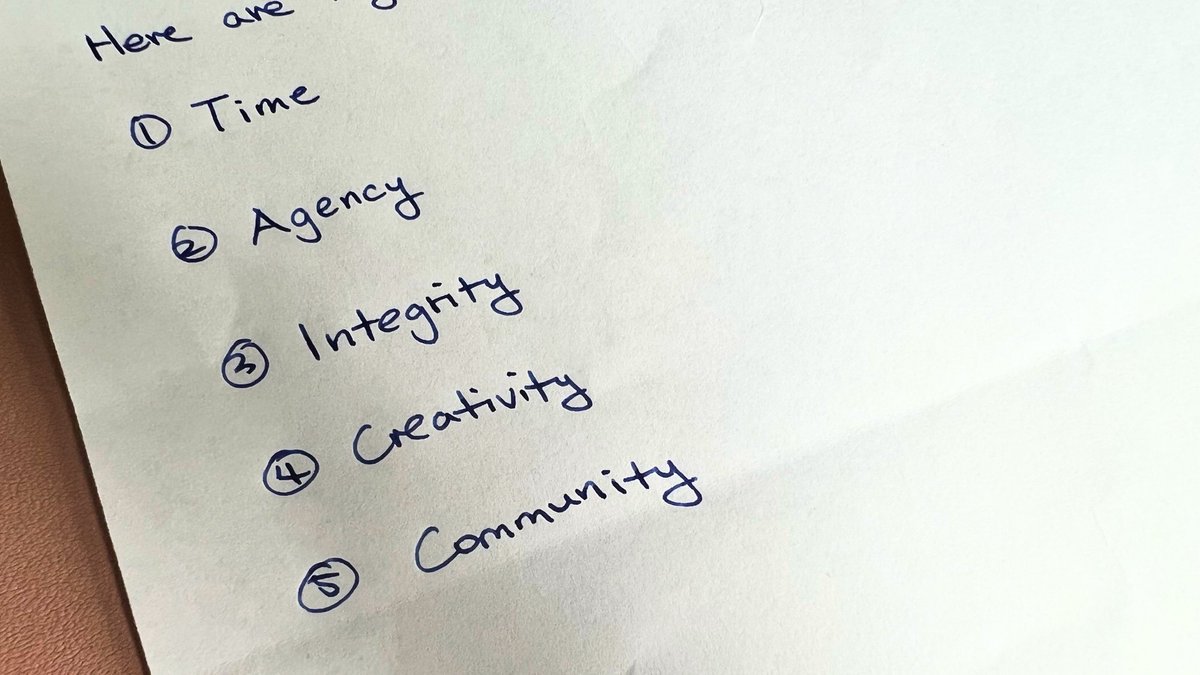 Here are
① Time
② Agency
③ Integrity
④ Creativity
⑤ Community